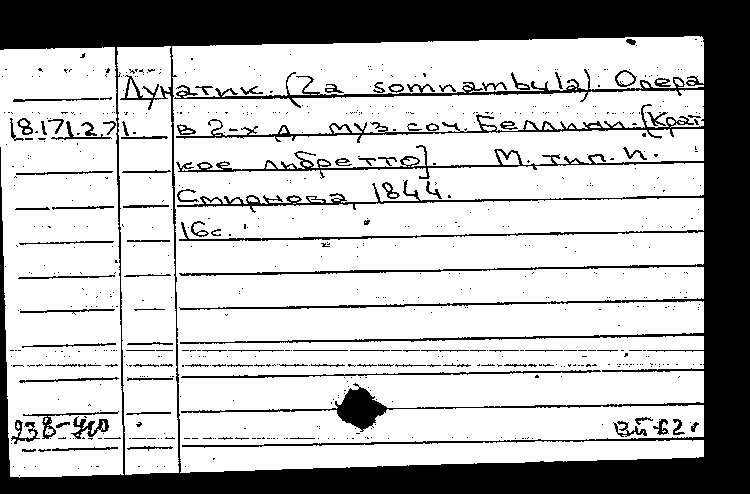 Лунатик. (La somnambula). Опера
18.171.2.71. в 2-х д. муз. соч. Беллини. [Крат-
кое либретто]. М., тип. И.
Смирнова, 1844.
16с.
238-40